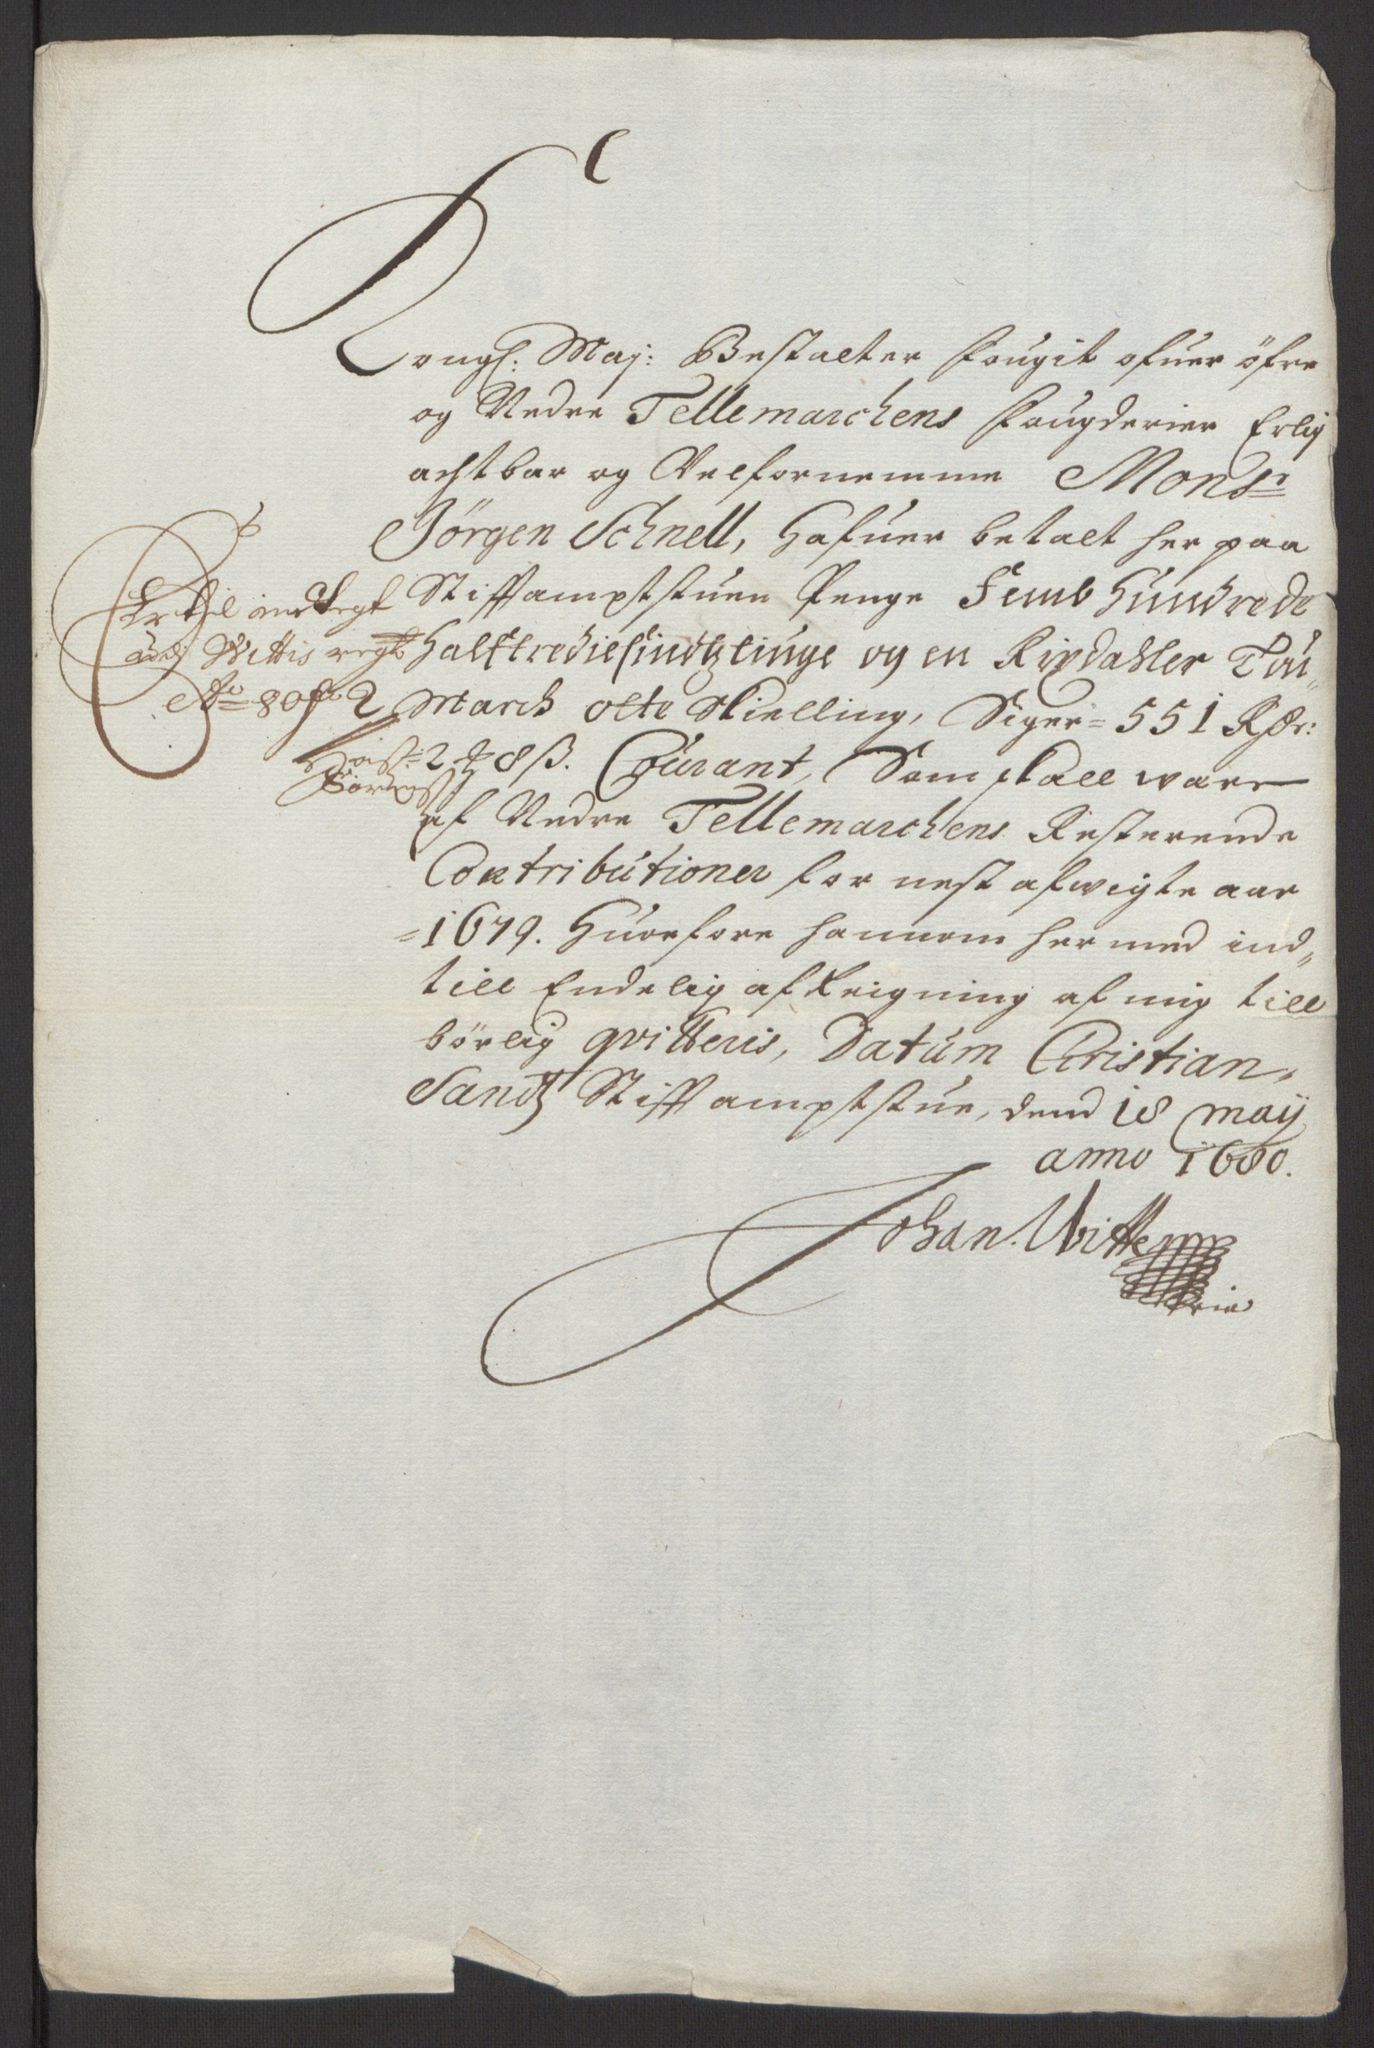 Kongl: Maj: Bestalter fougit ofuer öfre
og Nedre Tellemarchens fougderier Erlig
achtbar og Velfornemme Monsr
Jörgen Schnell, Hafuer betalt her paa
Stiffamptstuen Penge Femb Hundrede
Halftrediesindtztiuge og en Rixdahler Tou,,
March otte Skielling, Siger = 551 Rdr:
2 ℳ 8 ß. Courant, Som skall were
af Nedre Tellemarchens Resterende
Contributioner for nest afvigte aar
= 1679. Huorfore hannom hermed ind,,
till Endelig afreigning af mig till
börlig qvitteris, Datum Christian,,
Sandtz Stiffamptstue, dend 18 may
anno 1680.
Johan Witte
Er til
Wittis regt
Ao 80